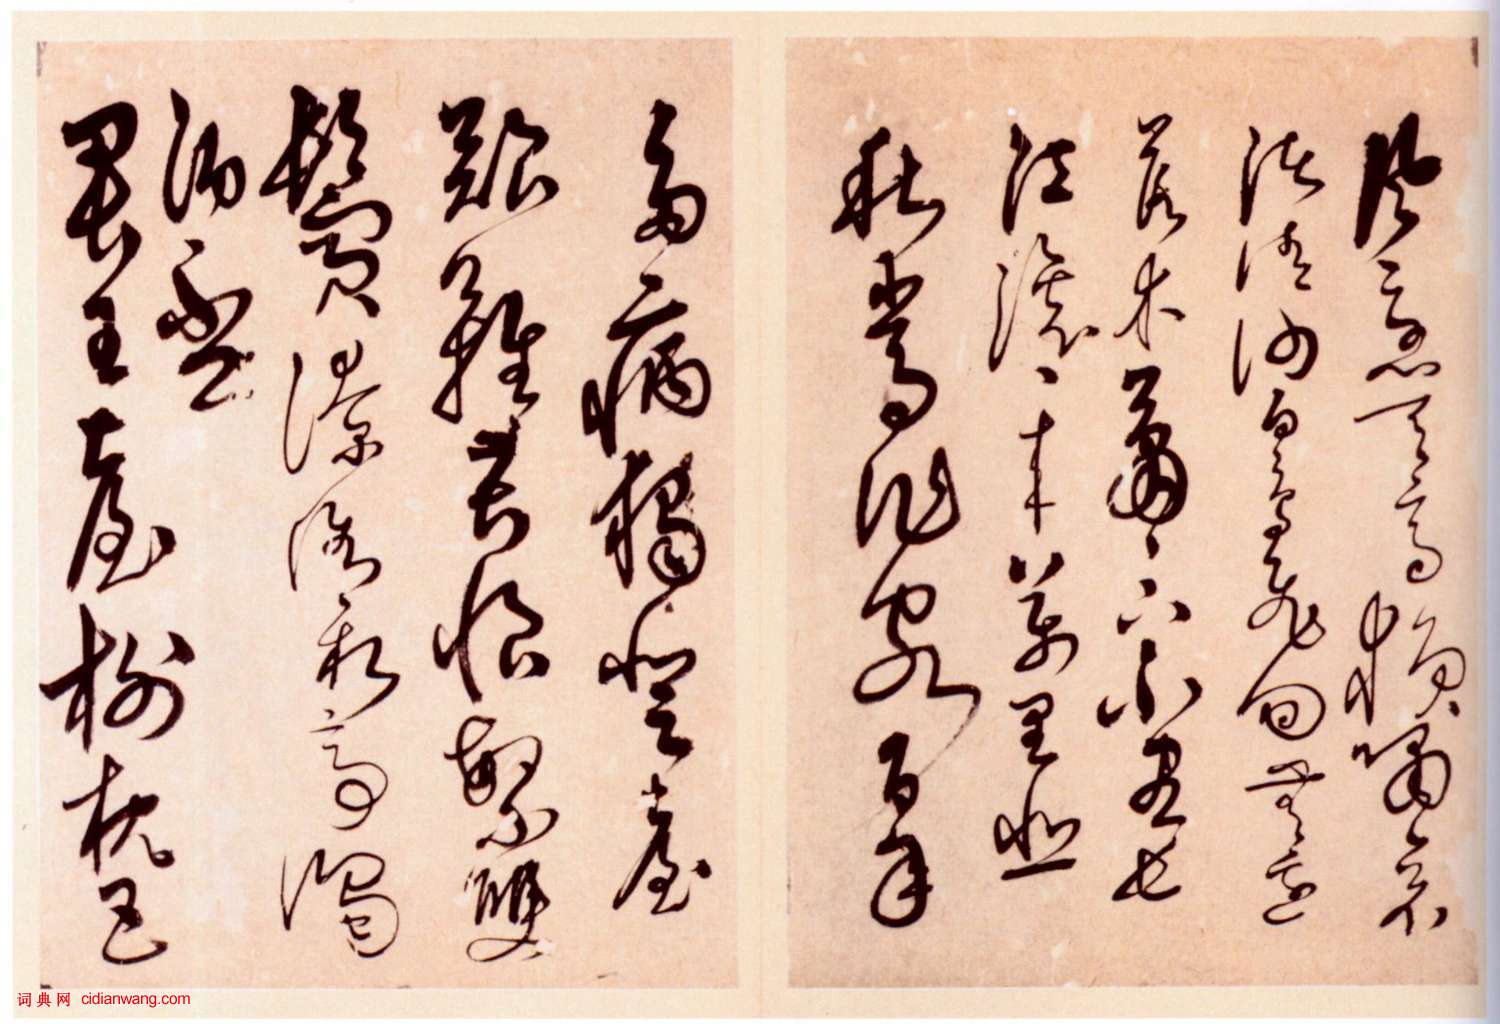 風急天高猿嘯哀
渚清沙白鳥飛回無邊
落木蕭〻下不盡長
江滾〻來萬里悲
秋常作客百年
多病獨登臺
艱難苦恨繁雙
鬢潦倒新停濁
酒盃
襄王臺榭枕巴
词典网 cidianwang.com